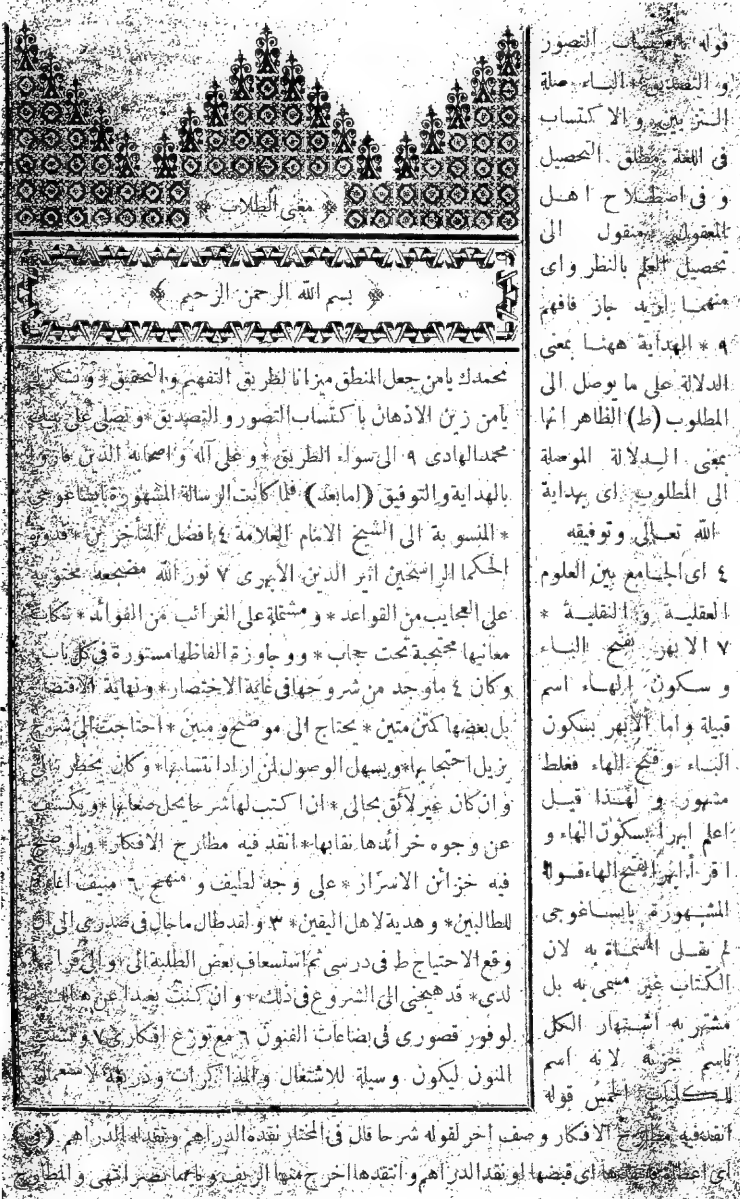 ﴿ مغنى الطلاب ﴾
﴿ بسم الله الرحمن الرحيم ﴾
نحمدك يا من جعل المنطق ميزانا لطريق التفهيم والتحقيق * ونشكرك
يا من زين الاذهان باكتساب التصور والتصديق * ونصلى على نبيك
محمد الهادى ٩ الى سواء الطريق * وعلى آله واصحابه الذين فازوا
بالهداية والتوفيق (امابعد) فلما كانت الرسالة المشهورة بايساغوجى
* المنسوبة الى الشيخ الامام العلامة ٤ افضل المتأخرين * قدوة
الحكما الراسخين اثير الدين الابهرى ٧ نور الله مضجعه محتوية
على العجايب من القواعد * ومشتملة على الغرائب من الفوائد * نكات
معانيها محتجبة تحت حجاب * ووجازة الفاظها مستورة فى كل باب
وكان ٤ ما وجد من شروحها فى غاية الاختصار * ونهاية الاقتصار
بل بعضها كمتن متين * يحتاج الى موضح ومبين * احتاجت الى شرح
يزيل احتجابها * ويسهل الوصول لمن اراد انتسابها * وكان يخطر ببالى
وان كان غير لائق بحالى * ان اكتب لها شرحا يحل صعابها * ويكشف
عن وجوه خرائدها نقابها * انقد فيه مطارح الافكار *
فيه خزائن الاسرار * على وجه لطيف ومنهج ٦ منيف
للطالبين * وهدية لاهل اليقين * ٣ ولقد طال ما جال فى صدرى الى ان
وقع الاحتياج ط فى درسى ثم استسعاف بعض الطلبة الى
لدى * قد هيجنى الى الشروع فى ذلك * وان كنت بعيدا عن
لوفور قصورى فى بضاعات الفنون ٦ مع توزع افكارى ٧
المنون ليكون وسيلة للاشتغال والمذاكرات وذريعة لاستعمال
قوله التصور
والتصديق الباء صلة
التزيين والاكتساب
فى اللغة مطلق التحصيل
وفى اصطلاح اهل
المعقول منقول الى
تحصيل العلم بالنظر واى
منهما اريد جاز فافهم
٩ * الهداية ههنا بمعنى
الدلالة على ما يوصل الى
المطلوب (ط) الظاهر انها
بمعنى الدلالة الموصلة
الى المطلوب اى بهداية
الله تعالى وتوفيقه
٤ اى الجامع بين العلوم
العقلية والنقلية *
٧ الابهر بفتح الباء
وسكون الهاء اسم
قبيلة واما الابهر بسكون
الباء وفتح الهاء فغلط
مشهور ولهذا قيل
اعلم ابهرا بسكون الهاء و
اقرأ ابهرا بفتح الهاء قوله
المشهورة بايساغوجى
لم يقل المسماة به لان
الكتاب غير مسمى به بل
مشتهر به اشتهار الكل
باسم جزئه لانه اسم
للكليات الخمس قوله
انقد فيه مطارح الافكار وصف آخر لقوله شرحا قال فى المختار نقده الدراهم ونقد له الدراهم
اى اعطاه اى قبضها ونقد الدراهم وانتقدها اخرج منها الزيف وبابهما نصر انتهى والمطارح